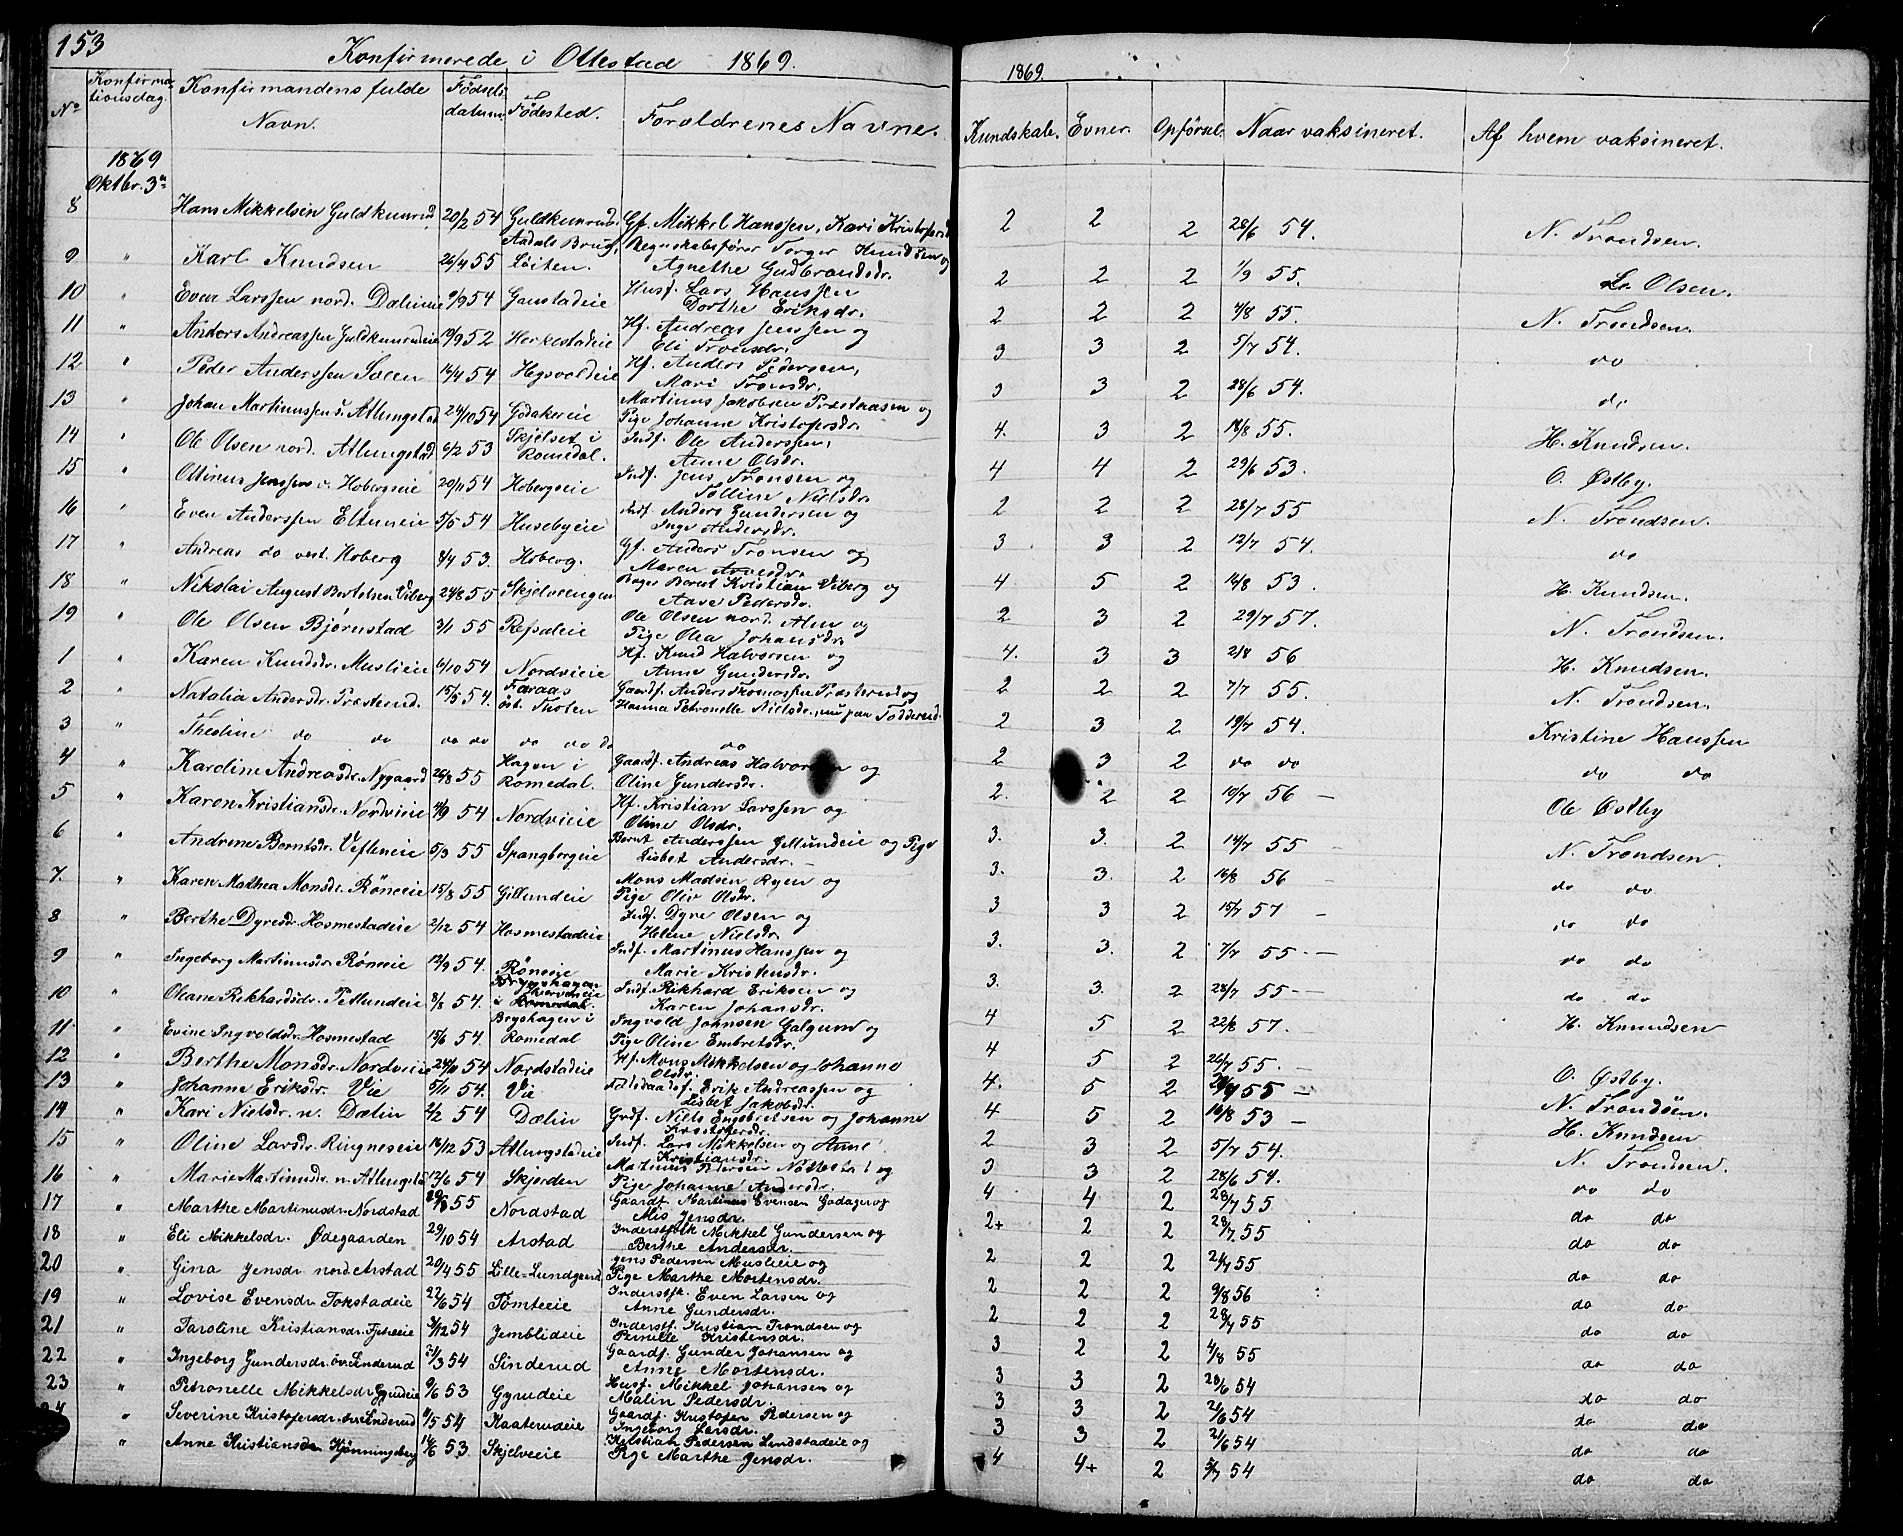 153
Konfirmerede i Ottestad 1869.
1869.
No
Konfirmationsdag.
Konfirmandens fulde Navn.
Fødsels datum.
Fødested.
Forældrenes Navne.
Kundskab. Evner. Opførsel. Naar vaksineret. Af hvem vaksineret.
1869
Oktbr. 3
8 Hans Mikkelsen Guldkunrud 20/2 54 Guldkunrud Gf. Mikkel Hanssen, Kari Kristofersd 2 2 2 28/6 54. N. Trondsen.
9 " Karl Knudsen 26/4 55 Aadals Brug, Løiten. Regnskabsfører Torger Knudsen og Agnethe Gudbrandsdr. 2 2 2 1/9 55. L. Olsen.
10 " Even Larssen nord. Dælineie 9/9 54 Ganstadeie Husf. Lars Hanssen Dorthe Eriksdr. 2 2 2 4/8 55. N. Trondsen.
11 " Anders Andreassen Guldkunrudeie 19/9 52 Herkestadeie Hf. Andreas Jenssen og Eli Tronsdr. 3 3 2 5/7 54. do
12 " Peder Anderssen Sveen 16/4 54 Hogsvordeie Hf. Anders Pedersen, Mari Tronsdr. 3 3 2 28/6 54. do
13 " Johan Martinussen s. Atlungstad 24/10 54 Godakereie Martinus Jakobsen Præsthusen og Pige Johanne Kristofersdr. 4. 3 2 18/8 55. H. Knudsen.
14 " Ole Olsen nord. Atlungstad 6/2 53 Skjelset i Romedal. Indf. Ole Anderssen, Anne Olsdr. 4 4 2 29/6 53. O. Østby.
15 " Ottinus Jenssen v. Hobergseie 20/11 54 Hobergseie Indf. Jens Tronsen og Tolline Nielsdr. 2 2 2 28/7 55 N. Trondsen.
16 " Even Anderssen Eltuneie 5/5 54 Husebyeie Indf. Anders Gundersen og Inge Andersdr. 3 3 2 12/7 54. do
17 " Andreas do vest. Hoberg 8/4 53. Hoberg. Gf. Anders Tronsen og Maren Arnesdr. 4 5 2 16/8 53. H. Knudsen.
18 " Nikolai August Berntsen Viberg 24/8 55 Skjelvengen Bager Bernt Kristian Viberg og Aase Pedersdr. 2 3 2 29/7 57. N. Trondsen.
19 " Ole Olsen Bjørnstad 3/1 55 Refsaleie Ole Olsen nord. Alm og Pige Olea Johansdr. 4. 3 3 2/8 56 H. Knudsen.
1 " Karen Knudsdr. Muslieie 6/10 54 Nordvieie Hf. Knud Halvorsen og Anne Gundersdr. 2 2 2 7/7 55. N. Trondsen.
2 " Natalia Andersdr. Præsterud. 15/5 54. Faraas øst. Thoten Gaardf. Anders Thomassen Præsterud og Hanna Petronelle Nielsdr., nu paa Fodderud. 2 3 2 19/7 54. Kristine Hanssen
3 " Theoline do do do do do do do do 2 3 2 do do do do
4 " Karoline Andreasdr. Nygaard 26/8 55 Hagen i Romedal. Gaardf. Andreas Halvorsen og Oline Gundersdr. 2. 2 2 10/7 56 — Ole Østby
5 " Karen Kristiansdr. Nordvieie 11/9 54 Nordvieie Hf. Kristian Larssen og Oline Olsdr. 3. 3. 2 14/7 55 — N. Trondsen.
6 " Andrene Berntsdr. Vefleneie 5/3 55 Spangbergeie Bernt Anderssen Gillundeie og Pige Lisbet Andersdr. — 3. 3. 2 16/8 56 do do
7. " Karen Mathea Monsdr. Røneeie 15/8 55 Gillundeie Mons Madsen Ryen og Pige Oliv Olsdr. 3 3 2 15/7 57 — do do
8 " Berthe Dyresdr. Hosmestadeie 2/12 54 Hosmestadeie Indf. Dyre Olsen og Helene Nielsdr. 3. 3. 2 7/7 55 — — do do
9 " Ingeborg Martinusdr. Røneeie 12/9 54. Røneeie Indf. Martinus Hanssen og Marie Kristensdr. 3. 3. 2 28/7 55 — do do
10 " Oleane Rikhardsdr. Petlundeie 8/8 54. Indf. Rikhard Eriksen og Karen Johansdr. 4 5 2 22/8 57. — H. Knudsen
11. " Evine Ingvoldsdr. Hosmestad 15/6 54. Bryshagen i Romedal Ingvold Johnsen Galgum og Pige Oline Embretsdr. 4 5 2 26/7 55. — O. Østby.
12 " Berthe Monsdr. Nordvieie 24/11 54 Nordstadeie Hf. Mons Mikkelsen og Johanne Olsdr. 4. 5 2 55 — N. Trondsen.
13 " Johanne Eriksdr. Vie 5/11 54. Vie Erik Andreassen og Lisbet Jakobsdr. 4 5 2 16/8 53 — H. Knudsen
14 " Kari Nielsdr. n. Dælin 2/2 54 Dælin Grdf. Niels Engebretsen og Johanne Kristofersdr. 2 3 2 5/7 54. N. Trondsen.
15 " Oline Larsdr. Ringneseie 16/12 53 Atlungstadeie Indf. Lars Mikkelsen og Anne Kristiansdr. 3 3 2 28/6 54. do do
16 " Marie Martinusdr. n. Atlungsta 12/6 54 Skjerden Martinus Pedersen og Pige Johanne Andersdr. 4 4 2 28/7 55 do do
17 " Marthe Martinusdr. Nordstad 55 Nordstad Gaardf. Martinus Evensen Godager og Mis Jensdr. 2+ 2 2 28/7 55 do do
18 " Eli Mikkelsdr. Ødegaarden 29/10 54 Arstad Inderstfolk Mikkel Gundersen og Berthe Andersdr. 2 2 2 24/7 55 do do
20 " Gina Jensdr nord. Arstad 20/4 55 Lille-Lundgaard Jens Pedersen Muslieie og Pige Marthe Mortensdr. 2 2 2 9/8 56 do do
19 " Lovise Evensdr. Tokstadeie 22/6 54 Tomteeie Inderstf. Even Larsen og Anne Gundersdr. 2 2 2 28/7 55 do do
21 " Taroline Kristiansdr. Fjetreeie 3/12 54 Jemblideie Inderstf. Kristian Trondsen og Pernille Kristensdr. 3 2 2 4/8 55 do do
22 " Ingeborg Gundersdr. øv. Sinderud 31/3 54 Sinderud Gaardf. Gunder Johansen og Anne Mortensdr. 3 3 2 28/6 54 do do
23 " Petronelle Mikkelsdr. Gyrudeie 9/6 53 Gyrudeie Husf. Mikkel Johansen og Malin Pedersdr. 3 3 2 21/6 54 do do
24 " Severine Kristofersdr. øv. Sinderud 11/5 54 Kaaterudeie Gaardf. Kristofer Pedersen og Ingeborg Larsdr. 3 3 2 21/6 54 do do
" Anne Kristiansdr. Kjønningsberg 14/6 53 Skjelveie Kristian Pedersen Lundstadeie og Pige Marthe Jensdr. 4 4+ 2 5/7 54 do do